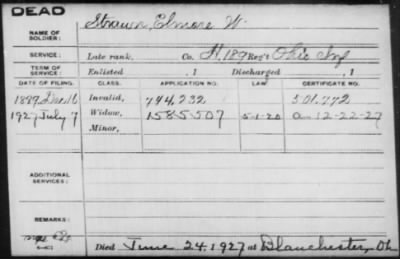 DEAD
NAME OF SOLDIER: Strawn, Elmore W.
SERVICE: Late rank, Co. H, 189 Reg't Ohio Inf
TERM OF SERVICE: Enlisted , 1 Discharged , 1
DATE OF FILING. CLASS. APPLICATION NO. LAW. CERTIFICATE NO.
1889 Dec. 16 Invalid, 744,232 501.772
1927 July 7 Widow, 1585507 5-1-20 a 12-22-27
Minor,
ADDITIONAL SERVICES:
REMARKS:
Died June 24, 1927 at Blanchester, Oh